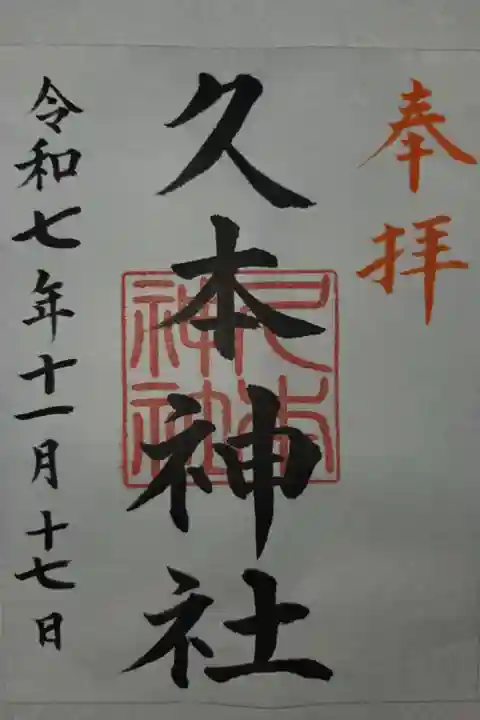 奉拝
久本神社
久本
神社
令和七年十一月十七日